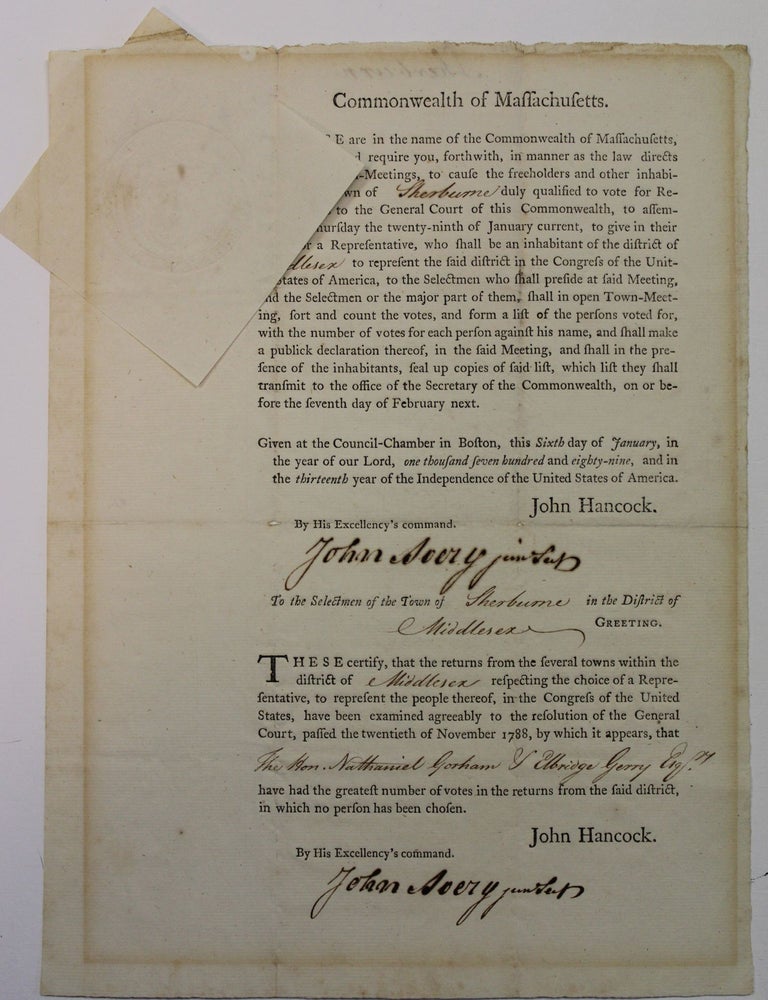 Commonwealth of Maſſachuſetts.
E are in the name of the Commonwealth of Maſſachuſetts,
require you, forthwith, in manner as the law directs
-Meetings, to cauſe the freeholders and other inhabi-
of Sherburne duly qualified to vote for Re-
to the General Court of this Commonwealth, to aſſem-
the twenty-ninth of January current, to give in their
a Repreſentative, who ſhall be an inhabitant of the diſtrict of
to repreſent the ſaid diſtrict in the Congreſs of the Unit-
States of America, to the Selectmen who ſhall preſide at ſaid Meeting,
and the Selectmen or the major part of them, ſhall in open Town-Meet-
ing, ſort and count the votes, and form a liſt of the perſons voted for,
with the number of votes for each perſon againſt his name, and ſhall make
a publick declaration thereof, in the ſaid Meeting, and ſhall in the pre-
ſence of the inhabitants, ſeal up copies of ſaid liſt, which liſt they ſhall
tranſmit to the office of the Secretary of the Commonwealth, on or be-
fore the ſeventh day of February next.
Given at the Council-Chamber in Boſton, this Sixth day of January, in
the year of our Lord, one thouſand ſeven hundred and eighty-nine, and in
the thirteenth year of the Independence of the United States of America.
John Hancock.
By His Excellency's command.
John Avery junr Secy
To the Selectmen of the Town of Sherburne in the Diſtrict of
Middlesex GREETING.
THESE certify, that the returns from the ſeveral towns within the
diſtrict of Middlesex reſpecting the choice of a Repre-
ſentative, to repreſent the people thereof, in the Congreſs of the United
States, have been examined agreeably to the reſolution of the General
Court, paſſed the twentieth of November 1788, by which it appears, that
The Hon. Nathaniel Gorham & Elbridge Gerry Eſqrs
have had the greateſt number of votes in the returns from the ſaid diſtrict,
in which no perſon has been choſen.
John Hancock.
By His Excellency's command.
John Avery junr Secy